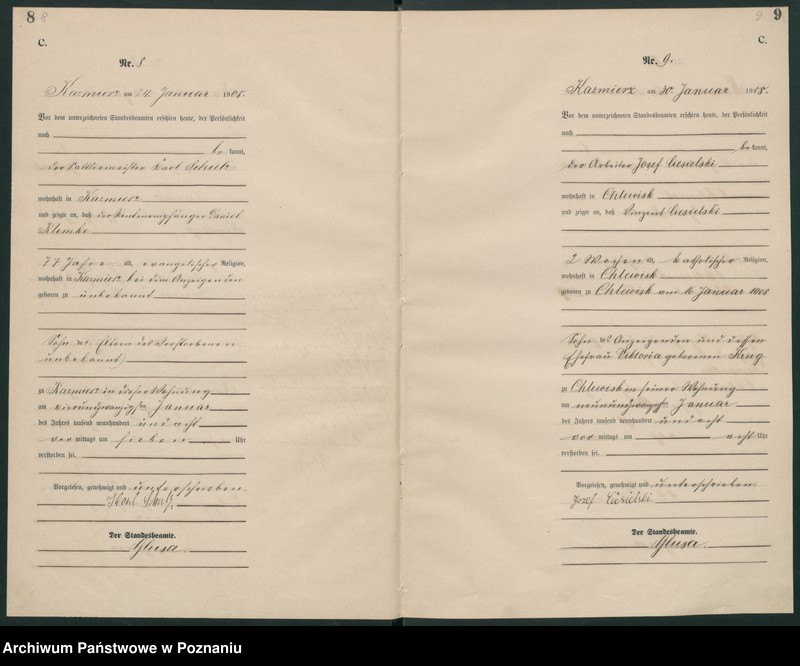 8 8
C.
Nr. 8
Kazmierz am 24. Januar 1908.
Vor dem unterzeichneten Standesbeamten erschien heute, der Persönlichkeit
nach
be kannt,
der Sattlermeister Karl
wohnhaft in Kazmierz
und zeigte an, daß der Rentenempfänger Daniel
Klemke
77 Jahre alt, evangelischer Religion,
wohnhaft in Kazmierz bei dem Anzeigenden
geboren zu unbekannt
Sohn der Eltern des Verstorbenen
unbekannt
zu Kazmierz in dieser Wohnung
am vierundzwanzigsten Januar
des Jahres tausend neunhundert und acht
vor mittags um sieben Uhr
verstorben sei.
Vorgelesen, genehmigt und unterschrieben.
Karl
Der Standesbeamte.
Glusa
9 9
C.
Nr. 9.
Kazmierz am 30. Januar 1908.
Vor dem unterzeichneten Standesbeamten erschien heute, der Persönlichkeit
nach
be kannt,
der Arbeiter Josef Ciesielski
wohnhaft in Chlewisk
und zeigte an, daß Vinzent Ciesielski
2 Wochen alt, katholischer Religion,
wohnhaft in Chlewisk
geboren zu Chlewisk am 16. Januar 1908
Sohn des Anzeigenden und dessen
Ehefrau Viktoria geborenen Krug
zu Chlewisk in seiner Wohnung
am neunundzwanzigsten Januar
des Jahres tausend neunhundert und acht
vor mittags um acht Uhr
verstorben sei.
Vorgelesen, genehmigt und unterschrieben.
Jozef Ciesielski
Der Standesbeamte.
Glusa
Archiwum Państwowe w Poznaniu